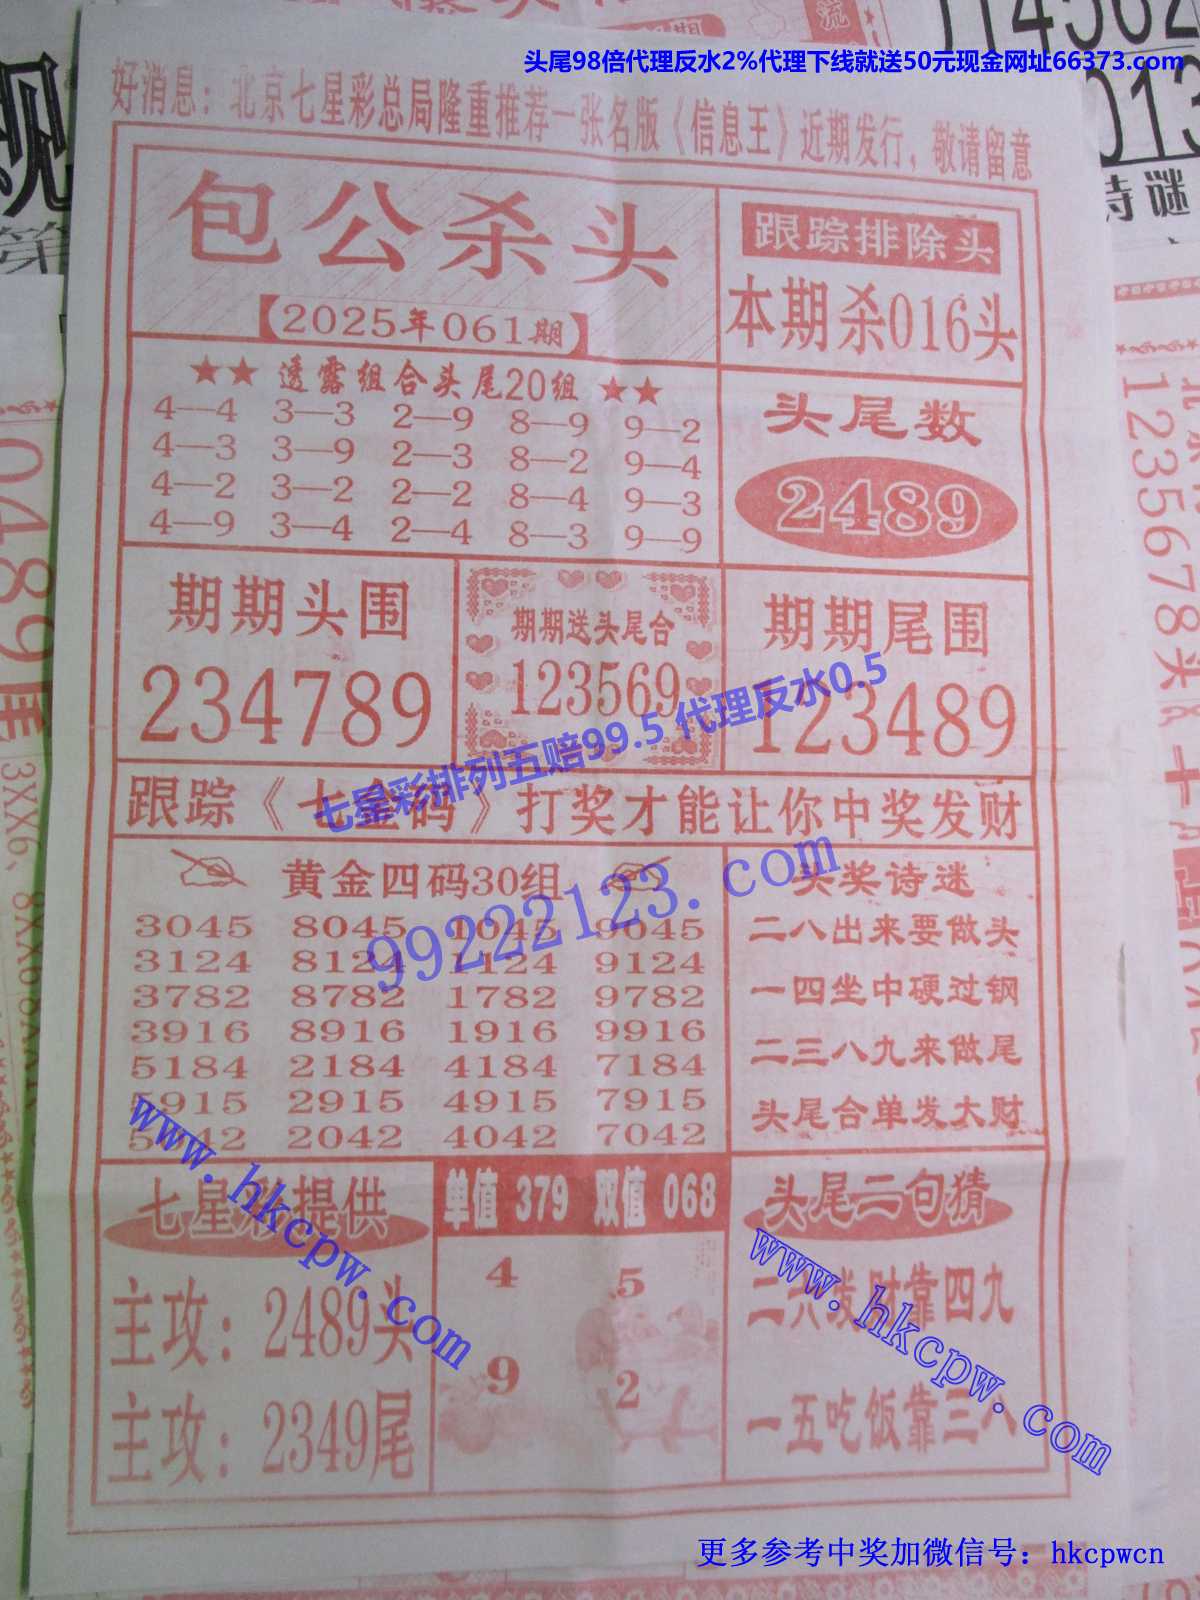 头尾98倍代理反水2%代理下线就送50元现金网址66373.com
好消息：北京七星彩总局隆重推荐一张名版《信息王》近期发行，敬请留意
包公杀头
【2025年061期】
跟踪排除头
本期杀016头
★★ 透露组合头尾20组 ★★
4—4 3—3 2—9 8—9 9—2
4—3 3—9 2—3 8—2 9—4
4—2 3—2 2—2 8—4 9—3
4—9 3—4 2—4 8—3 9—9
头尾数
2489
期期头围
234789
期期送头尾合
123569
期期尾围
123489
七星彩排列五赔99.5 代理反水0.5
跟踪《七星码》打奖才能让你中奖发财
黄金四码30组
3045 8045 1045 9045
3124 8124 1124 9124
3782 8782 1782 9782
3916 8916 1916 9916
5184 2184 4184 7184
5915 2915 4915 7915
5042 2042 4042 7042
99222123.com
头奖诗迷
二八出来要做头
一四坐中硬过钢
二三八九来做尾
头尾合单发大财
www.hkcpw.com
七星彩提供
主攻：2489头
主攻：2349尾
单值 379 双值 068
4 5
9 2
头尾二句猜
二六发财靠四九
一五吃饭靠三八
www.hkcpw.com
更多参考中奖加微信号：hkcpwcn
0489尾
3XX6、8XX6
诗谜
1235678头